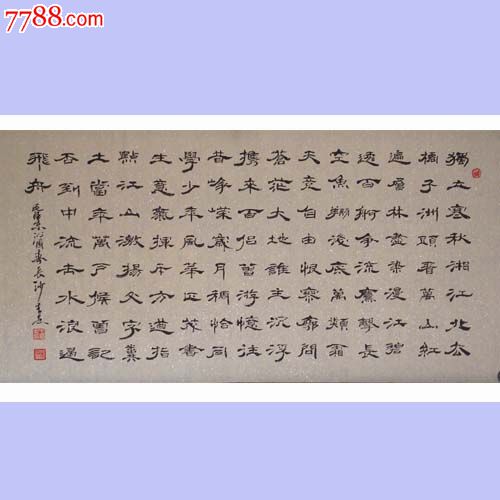 7788.com
獨立寒秋湘江北去
橘子洲頭看萬山紅
遍層林盡染漫江碧
透百舸爭流鷹擊長
空魚翔淺底萬類霜
天竞自由悵寥廓問
蒼茫大地誰主沉浮
携來百侣曾游憶往
昔崢嶸歲月稠恰同
學少年風華正茂書
生意氣揮斥方遒指
點江山激揚文字糞
土當年萬户侯曾記
否到中流击水浪遏
飛舟
毛澤東沁園春長沙